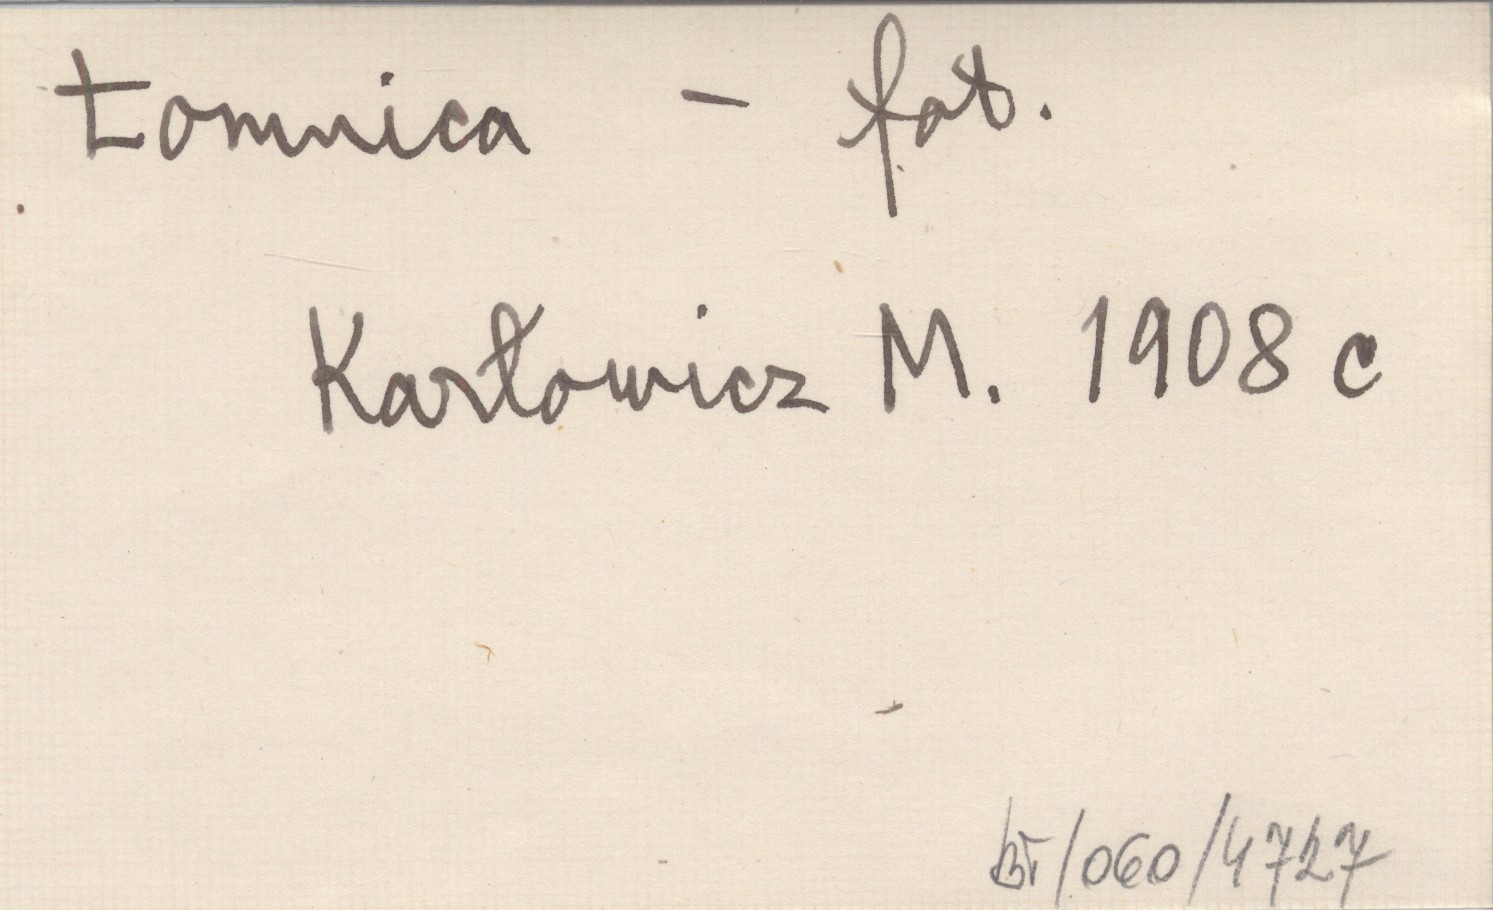 Łomnica – fot.
Karłowicz M. 1908 c
bī/060/4727